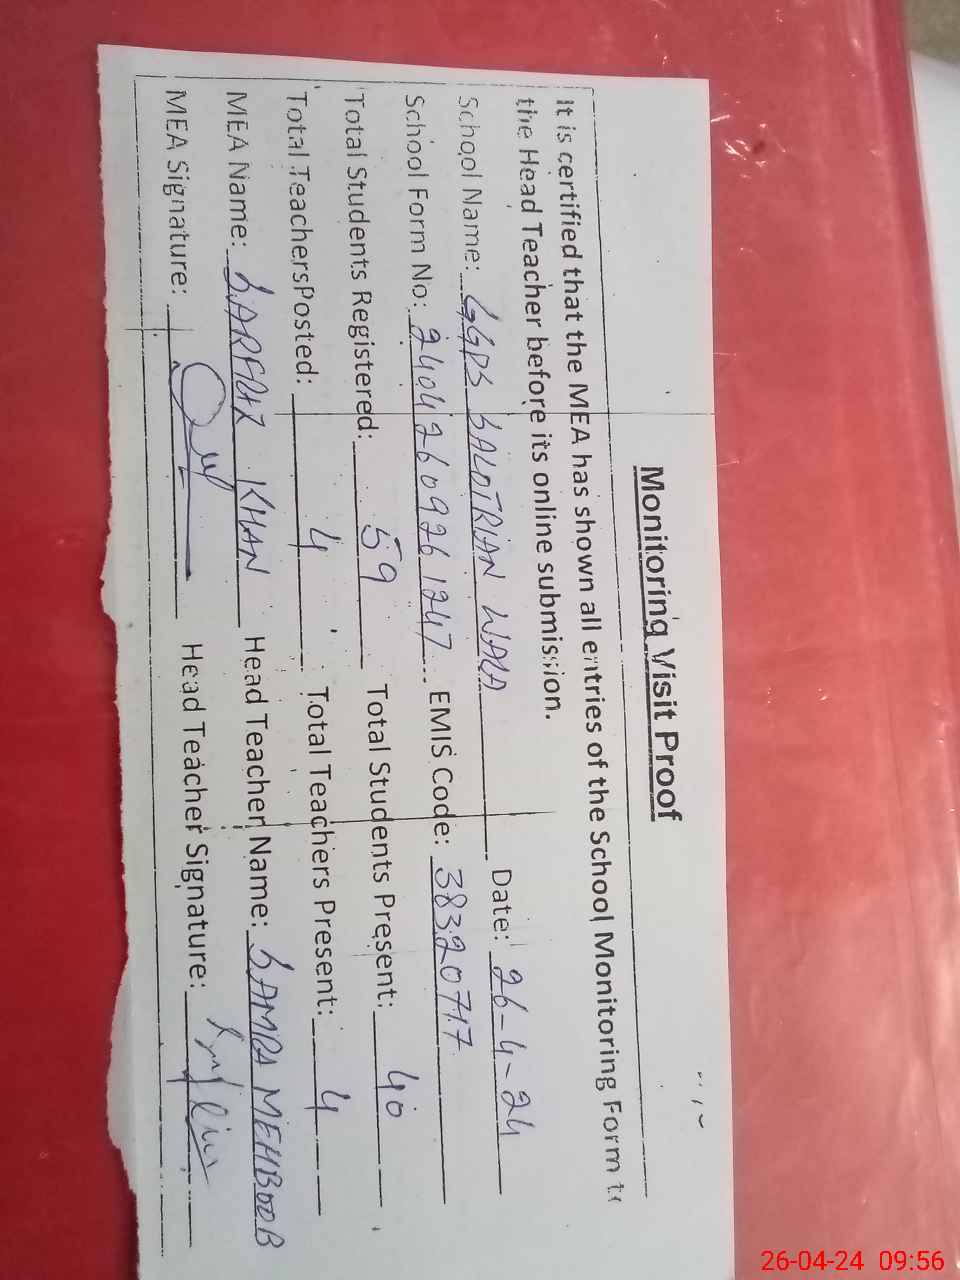 Monitoring Visit Proof
It is certified that the MEA has shown all entries of the School Monitoring Form to
the Head Teacher before its online submission.
School Name: GGPS BALOTRIAN WALA Date: 26-4-24
School Form No: 24042609261247 EMIS Code: 38320717
Total Students Registered: 59 Total Students Present: 40
Total Teachers Posted: 4 Total Teachers Present: 4
MEA Name: SARFRAZ KHAN Head Teacher Name: SAMRA MEHBOOB
MEA Signature: Head Teacher Signature:
26-04-24 09:56